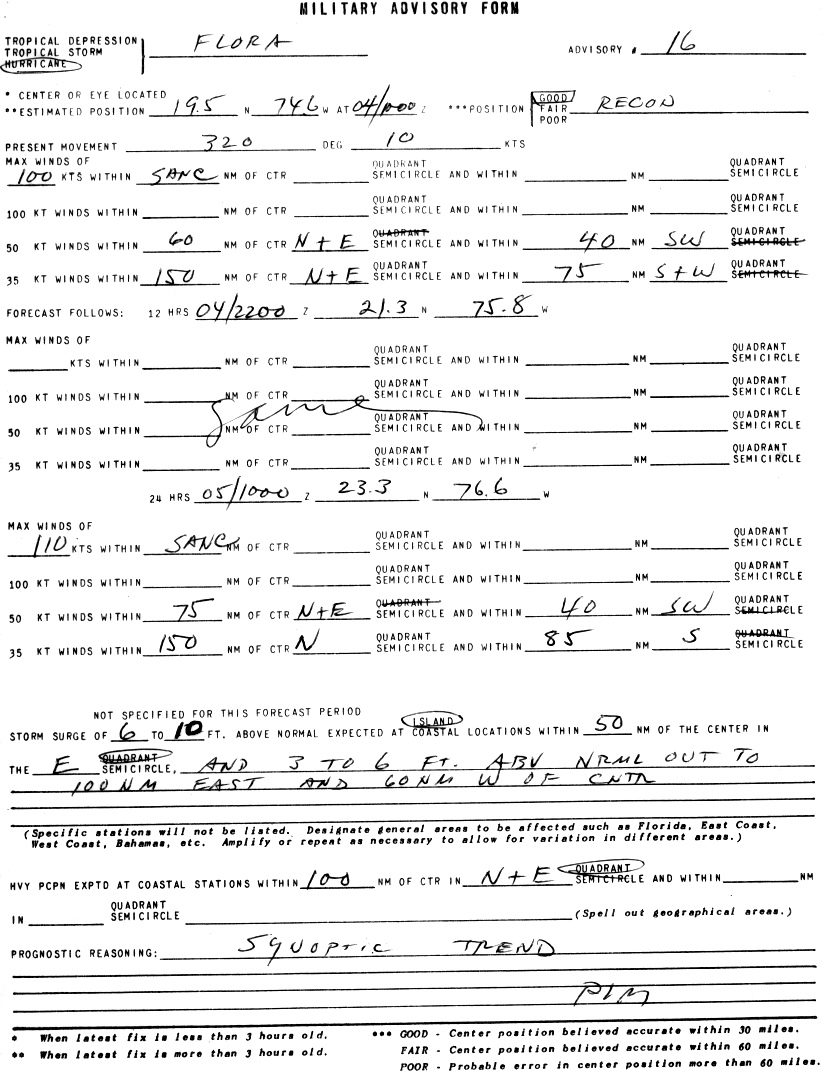 MILITARY ADVISORY FORM
TROPICAL DEPRESSION
TROPICAL STORM FLORA ADVISORY # 16
HURRICANE
* CENTER OR EYE LOCATED
**ESTIMATED POSITION 19.5 N 74.6 W AT 04/1000 Z ***POSITION GOOD FAIR POOR RECON
PRESENT MOVEMENT 320 DEG 10 KTS
MAX WINDS OF
100 KTS WITHIN SANC NM OF CTR QUADRANT SEMICIRCLE AND WITHIN NM QUADRANT SEMICIRCLE
100 KT WINDS WITHIN NM OF CTR QUADRANT SEMICIRCLE AND WITHIN NM QUADRANT SEMICIRCLE
50 KT WINDS WITHIN 60 NM OF CTR N+E QUADRANT SEMICIRCLE AND WITHIN 40 NM SW QUADRANT SEMICIRCLE
35 KT WINDS WITHIN 150 NM OF CTR N+E QUADRANT SEMICIRCLE AND WITHIN 75 NM S+W QUADRANT SEMICIRCLE
FORECAST FOLLOWS: 12 HRS 04/2200 Z 21.3 N 75.8 W
MAX WINDS OF
KTS WITHIN NM OF CTR QUADRANT SEMICIRCLE AND WITHIN NM QUADRANT SEMICIRCLE
100 KT WINDS WITHIN NM OF CTR QUADRANT SEMICIRCLE AND WITHIN NM QUADRANT SEMICIRCLE
Same
50 KT WINDS WITHIN NM OF CTR QUADRANT SEMICIRCLE AND WITHIN NM QUADRANT SEMICIRCLE
35 KT WINDS WITHIN NM OF CTR QUADRANT SEMICIRCLE AND WITHIN NM QUADRANT SEMICIRCLE
24 HRS 05/1000 Z 23.3 N 76.6 W
MAX WINDS OF
110 KTS WITHIN SANC NM OF CTR QUADRANT SEMICIRCLE AND WITHIN NM QUADRANT SEMICIRCLE
100 KT WINDS WITHIN NM OF CTR QUADRANT SEMICIRCLE AND WITHIN NM QUADRANT SEMICIRCLE
50 KT WINDS WITHIN 75 NM OF CTR N+E QUADRANT SEMICIRCLE AND WITHIN 40 NM SW QUADRANT SEMICIRCLE
35 KT WINDS WITHIN 150 NM OF CTR N QUADRANT SEMICIRCLE AND WITHIN 85 NM S QUADRANT SEMICIRCLE
NOT SPECIFIED FOR THIS FORECAST PERIOD
STORM SURGE OF 6 TO 10 FT. ABOVE NORMAL EXPECTED AT ISLAND COASTAL LOCATIONS WITHIN 50 NM OF THE CENTER IN
THE E QUADRANT SEMICIRCLE, AND 3 TO 6 FT. ABV NRML OUT TO
100 NM EAST AND 60NM W OF CNTR
(Specific stations will not be listed. Designate general areas to be affected such as Florida, East Coast,
West Coast, Bahamas, etc. Amplify or repeat as necessary to allow for variation in different areas.)
HVY PCPN EXPTD AT COASTAL STATIONS WITHIN 100 NM OF CTR IN N+E QUADRANT SEMICIRCLE AND WITHIN NM
IN QUADRANT SEMICIRCLE (Spell out geographical areas.)
PROGNOSTIC REASONING: SYNOPTIC TREND
* When latest fix is less than 3 hours old. *** GOOD - Center position believed accurate within 30 miles.
** When latest fix is more than 3 hours old. FAIR - Center position believed accurate within 60 miles.
POOR - Probable error in center position more than 60 miles.